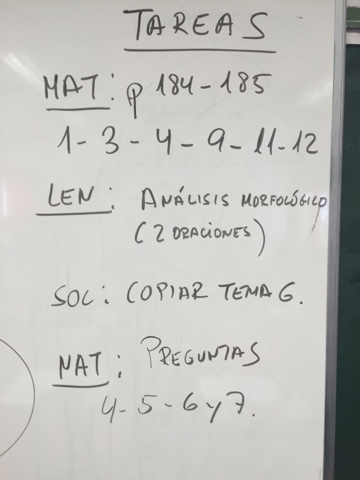 TAREAS
MAT: p 184-185
1-3-4-9-11-12
LEN: ANÁLISIS MORFOLÓGICO
(2 ORACIONES)
SOC: COPIAR TEMA 6.
NAT: PREGUNTAS
4-5-6 y 7.